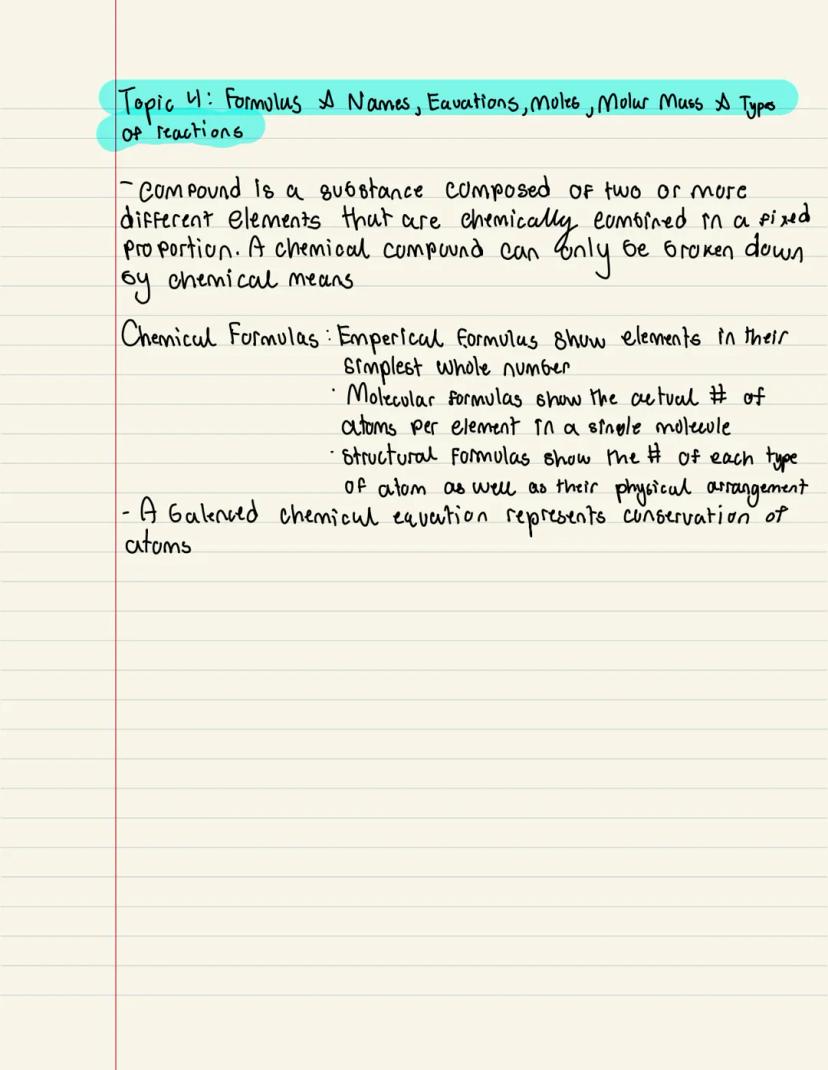 Topic 4: Formulas & Names, Equations, Moles, Molar Mass & Types
of reactions
- Compound is a substance composed of two or more
different elements that are chemically combined in a fixed
proportion. A chemical compound can only be broken down
by chemical means
Chemical Formulas: Emperical formulas show elements in their
simplest whole number
· Molecular formulas show the actual # of
atoms per element in a single molecule
· Structural formulas show the # of each type
of atom as well as their physical arrangement
- A balanced chemical equation represents conservation of
atoms